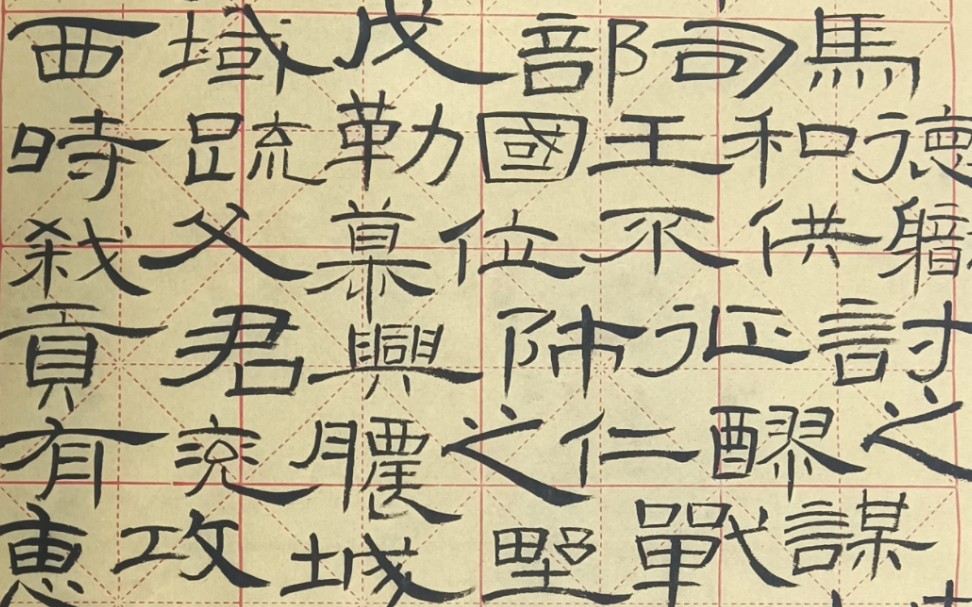 西域戊部司馬
時疏勒國王和德
弒父篡位不供職
貢君興師征討
有兗膿之仁醪之
惠攻城野戰謀